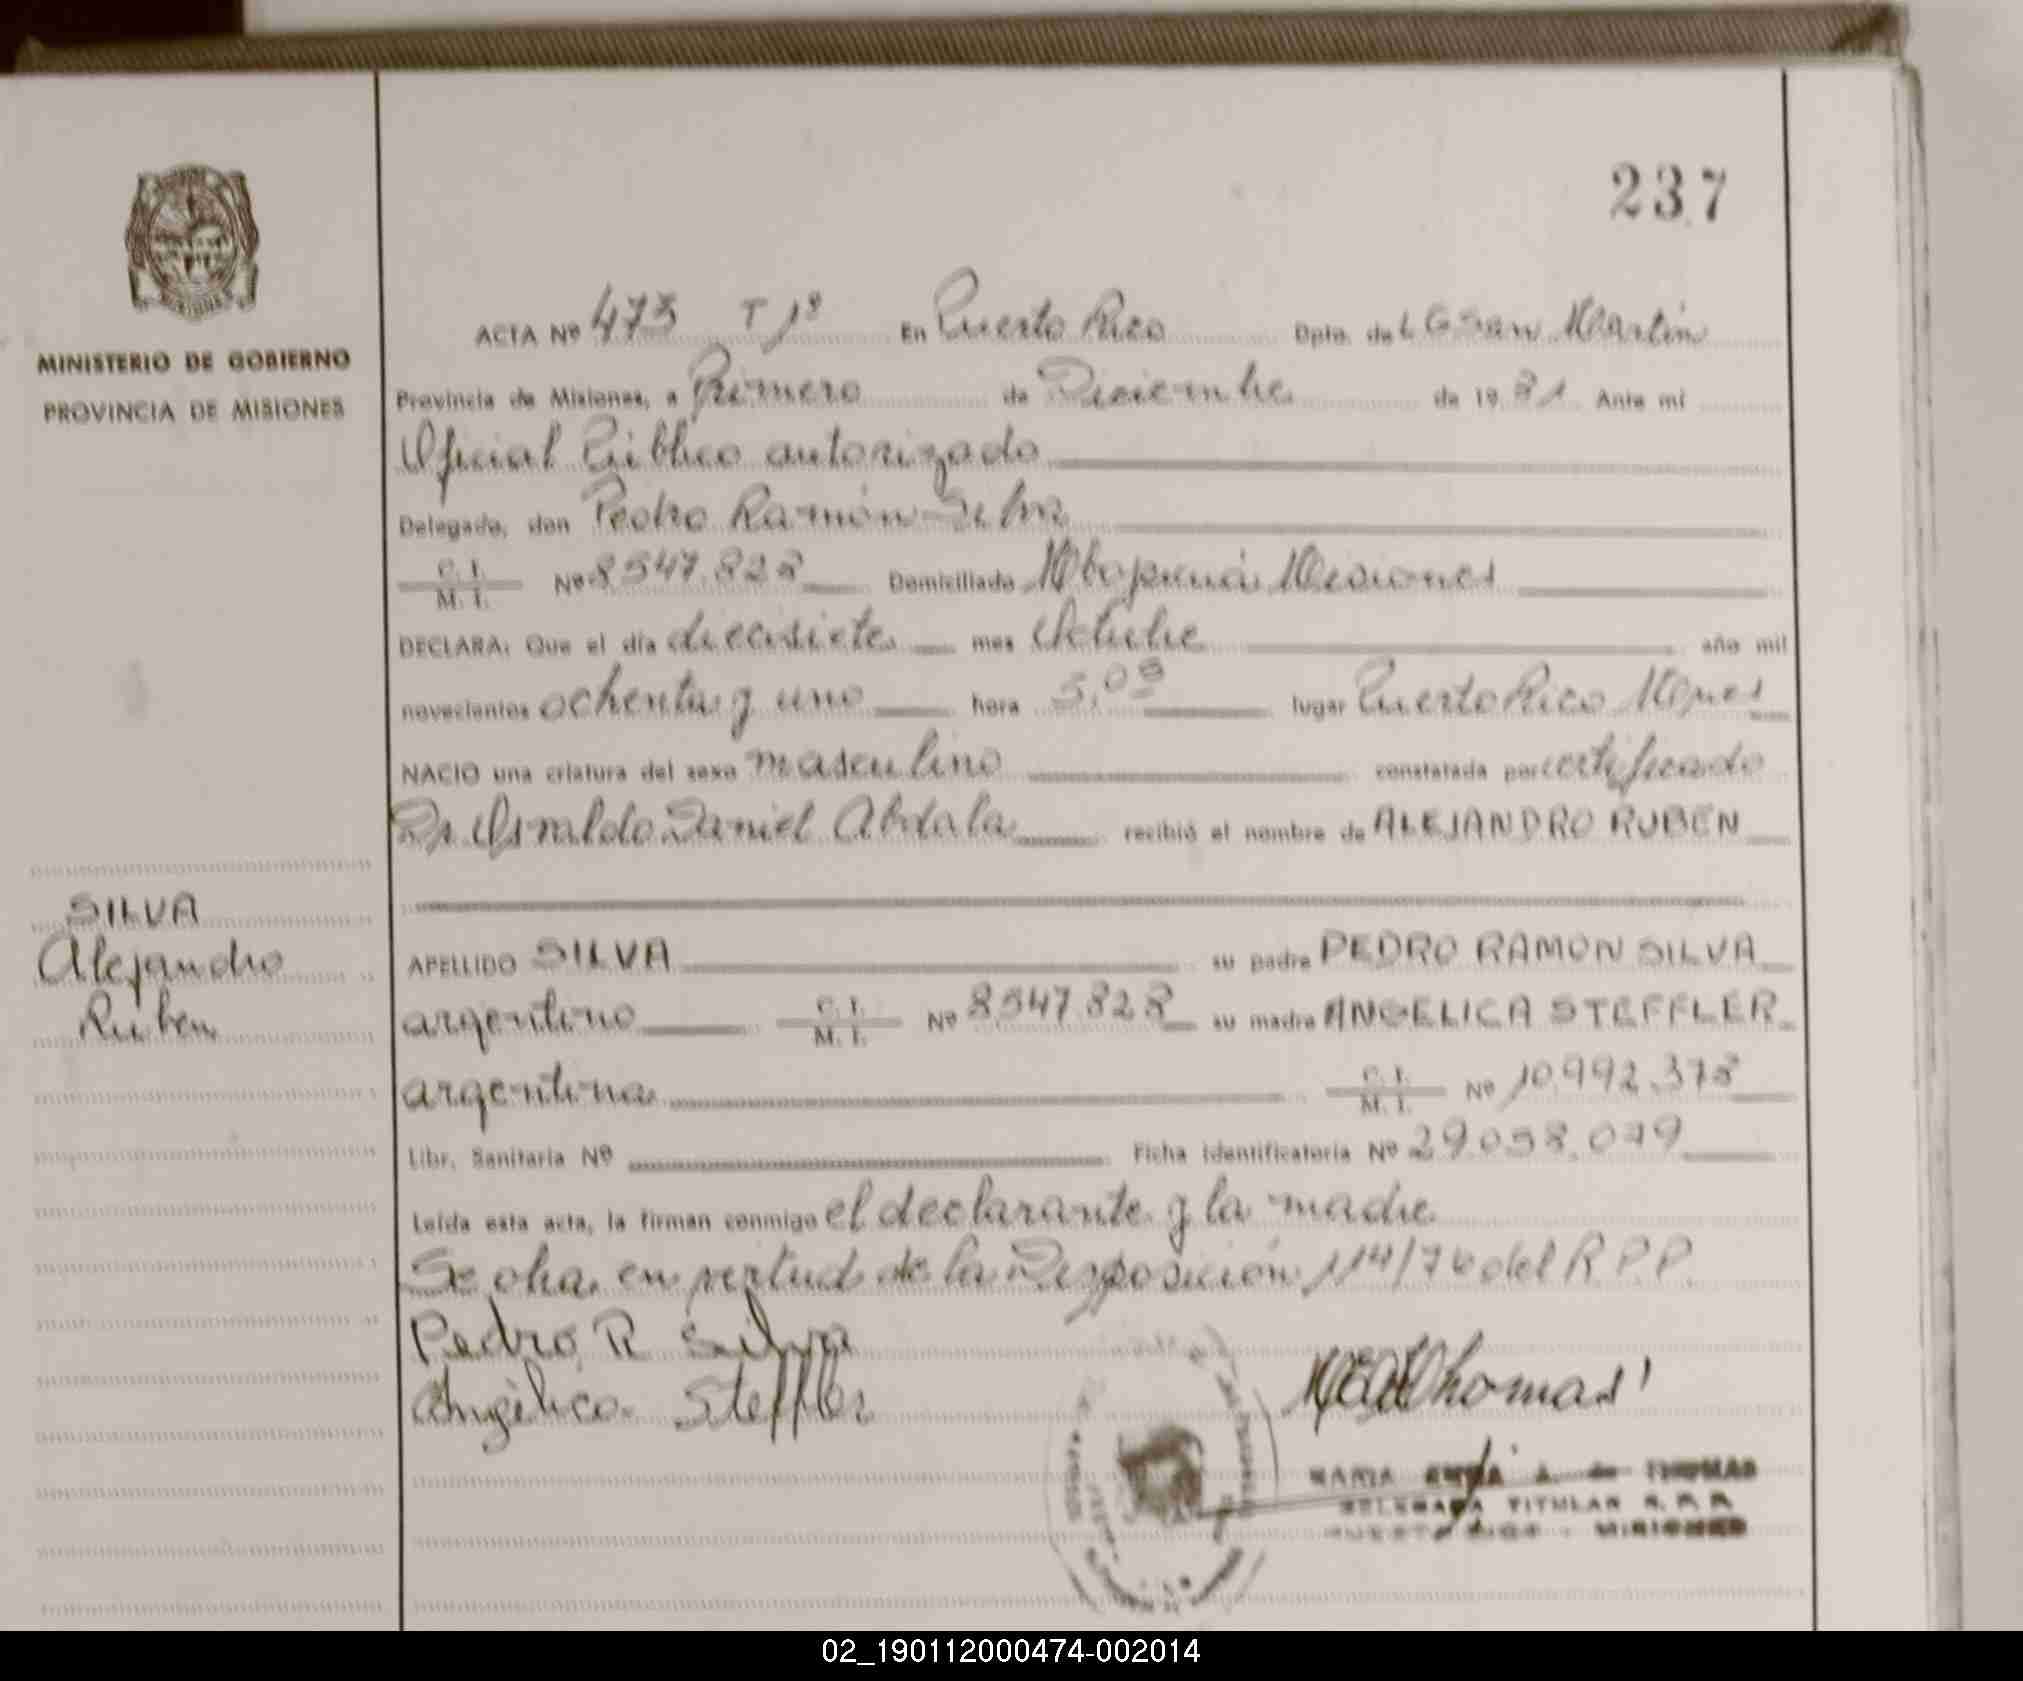 237
MINISTERIO DE GOBIERNO
PROVINCIA DE MISIONES
ACTA Nº 473 T 1º En Puerto Rico Dpto. de LG San Martín
Provincia de Misiones, a Primero de Diciembre de 1981 Ante mi
Oficial Público autorizado
Delegado, don Pedro Ramón Silva
C. I. M. I. Nº 8547.828 Domiciliado Mbopicuá Misiones
DECLARA: Que el día diecisiete mes Octubre año mil
novecientos ochenta y uno hora 5,05 lugar Puerto Rico Mnes
NACIO una criatura del sexo masculino constatada por certificado
Dr Osvaldo Daniel Abdala recibió el nombre de ALEJANDRO RUBEN
SILVA
Alejandro
Ruben
APELLIDO SILVA su padre PEDRO RAMON SILVA
argentino C. I. M. I. Nº 8547828 su madre ANGELICA STEFFLER
argentina C. I. M. I. Nº 10.992.378
Libr. Sanitaria Nº Ficha identificatoria Nº 29.058.079
Leída esta acta, la firman conmigo el declarante y la madre
Se olia en virtud de la Disposición 114/76 del R P P.
Pedro R Silva
Angélica Steffler
Thomas
MARIA EMMA A. de THOMAS
DELEGADA TITULAR R. P. P.
PUERTO RICO - MISIONES
02_190112000474-002014